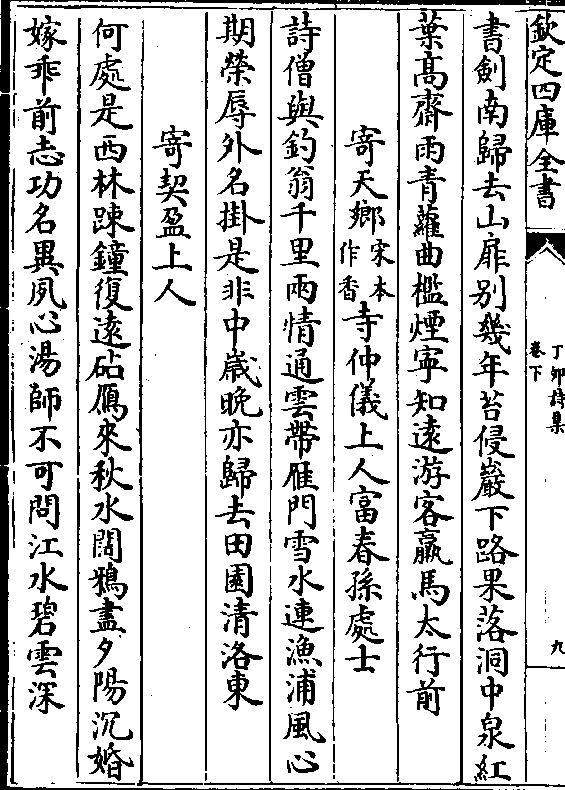 欽定四庫全書
丁卯詩集
卷下
九
書劍南歸去山扉别幾年苔侵巖下路果落洞中泉紅
葉髙齋雨青蘿曲檻煙寜知逺游客羸馬太行前
寄天鄉宋本作香寺仲儀上人富春孫處士
詩僧與釣翁千里兩情通雲帶雁門雪水連漁浦風心
期榮辱外名掛是非中歲晚亦歸去田園清洛東
寄契盈上人
何處是西林踈鐘復逺砧鴈來秋水闊鴉盡夕陽沉婚
嫁乖前志功名異夙心湯師不可問江水碧雲深